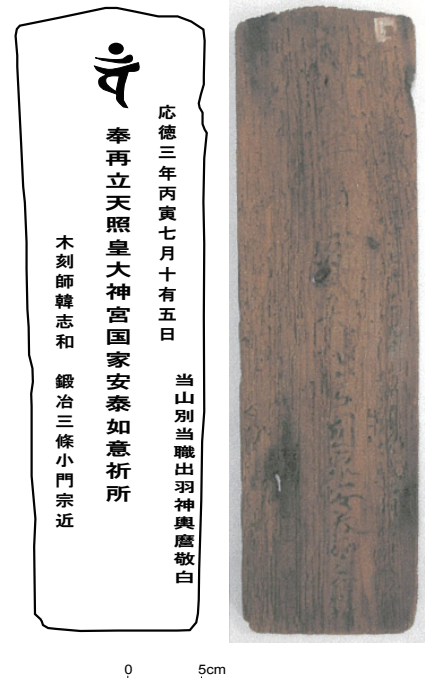 応徳三年丙寅七月十有五日
当山別当職出羽神輿麿敬白
奉再立天照皇大神宮国家安泰如意祈所
木刻師韓志和 鍛冶三條小門宗近
0 5cm